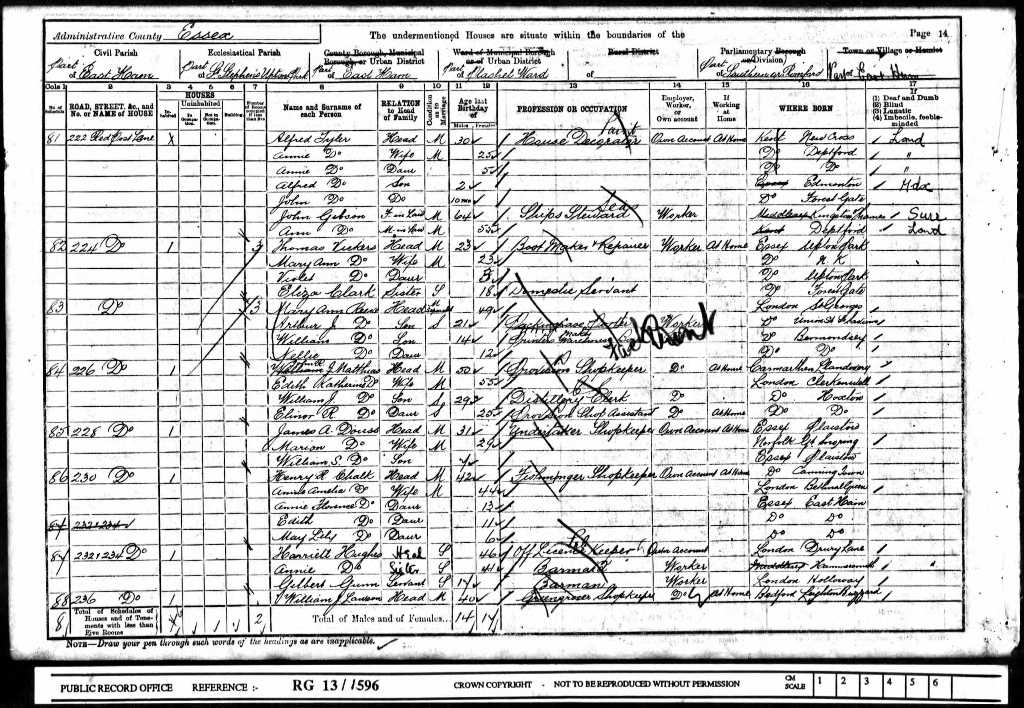 Administrative County Essex The undermentioned Houses are situate within the boundaries of the Page 14
Civil Parish Ecclesiastical Parish County Borough, Municipal Borough, or Urban District Ward of Municipal Borough or of Urban District Rural District Parliamentary Borough or Division Town or Village or Hamlet
Part of East Ham Part of St Stephens Upton Park Part of East Ham Part of Plashet Ward of Part of Southern or Romford Part of East Ham
Cols 1 2 3 4 5 6 7 8 9 10 11 12 13 14 15 16 17
No. of Schedule ROAD, STREET, &c., and No. or NAME of HOUSE HOUSES Inhabited Uninhabited In Occupation Not in Occupation Building Number of Rooms occupied if less than five Name and Surname of each Person RELATION to Head of Family Condition as to Marriage Age last Birthday of Males Females PROFESSION OR OCCUPATION Employer, Worker, or Own account If Working at Home WHERE BORN (1) Deaf and Dumb (2) Blind (3) Lunatic (4) Imbecile, feeble-minded
81 222 Red Post Lane X Alfred Tyler Head M 30 House Decorator Paint Own Account At Home Kent New Cross Lond
Annie Do Wife M 25 Do Deptford "
Annie Do Daur 5 Do Do "
Alfred Do Son 2 Essex Edmonton Mdx
John Do Do 10 mos Do Forest Gate
John Gibson F-in-Law M 64 Ships Steward Sea Worker Middlesex Kingston Thames Sure
Ann Do M-in-Law M 55 Kent Deptford Lond
82 224 Do 1 3 Thomas Vickers Head M 23 Boot Maker & Repairer Worker At Home Essex Upton Park
Mary Ann Do Wife M 23 Do N. K
Violet Do Daur 3 Do Upton Park
Eliza Clark Sister S 18 Domestic Servant Do Forest Gate
83 Do 3 Mary Ann Head 49 London St Georges
Arthur J. Do Son S 21 Packing Case Worker Do
William Do Son 14 Printers Warehouse Do Bermondsey
Nellie Do Daur 12 Do Do
Fred Brunt
84 226 Do 1 J. Matthias Head M 50 Provision Shopkeeper Do At Home Carmarthen Llandovery
Edith Katherine Do Wife M 55 London Clerkenwell
William J. Do Son S 29 Distillery Clerk Do Do Hoxton
Elinor R Do Daur S 25 Provision Shop Assistant Do At Home Do Do
85 228 Do 1 James A. Head M 31 Undertaker Shopkeeper Own Account At Home Essex Plaistow
Marion Do Wife M 29 Norfolk Gt
William S. Do Son 7 Essex Plaistow
86 230 Do 1 Henry R Chalk Head M 42 Fishmonger Shopkeeper Own Account At Home Do Canning Town
Annie Amelia Do Wife M 44 London Bethnal Green
Annie Florence Do Daur 13 Essex East Ham
Edith Do Daur 11 Do Do
87 232 & 234 May Lily Do Daur 6 Do Do
87 232 & 234 Do 1 Harriett Hughes Head S 46 Off Licence Keeper Own Account London Drury Lane
Annie Do Sister S 41 Barmaid Worker Middlesex Hammersmith "
Gilbert Gunn Servant S 17 Barman Worker London Holloway
88 236 Do 1 William J Lawson Head M 40 Greengrocer Shopkeeper Do At Home Bedford Leighton Buzzard
8 Total of Schedules of Houses and of Tenements with less than Five Rooms 2 Total of Males and of Females... 14 17
NOTE—Draw your pen through such words of the headings as are inapplicable.
PUBLIC RECORD OFFICE REFERENCE :- RG 13/1596 CROWN COPYRIGHT - NOT TO BE REPRODUCED WITHOUT PERMISSION CM SCALE 1 2 3 4 5 6